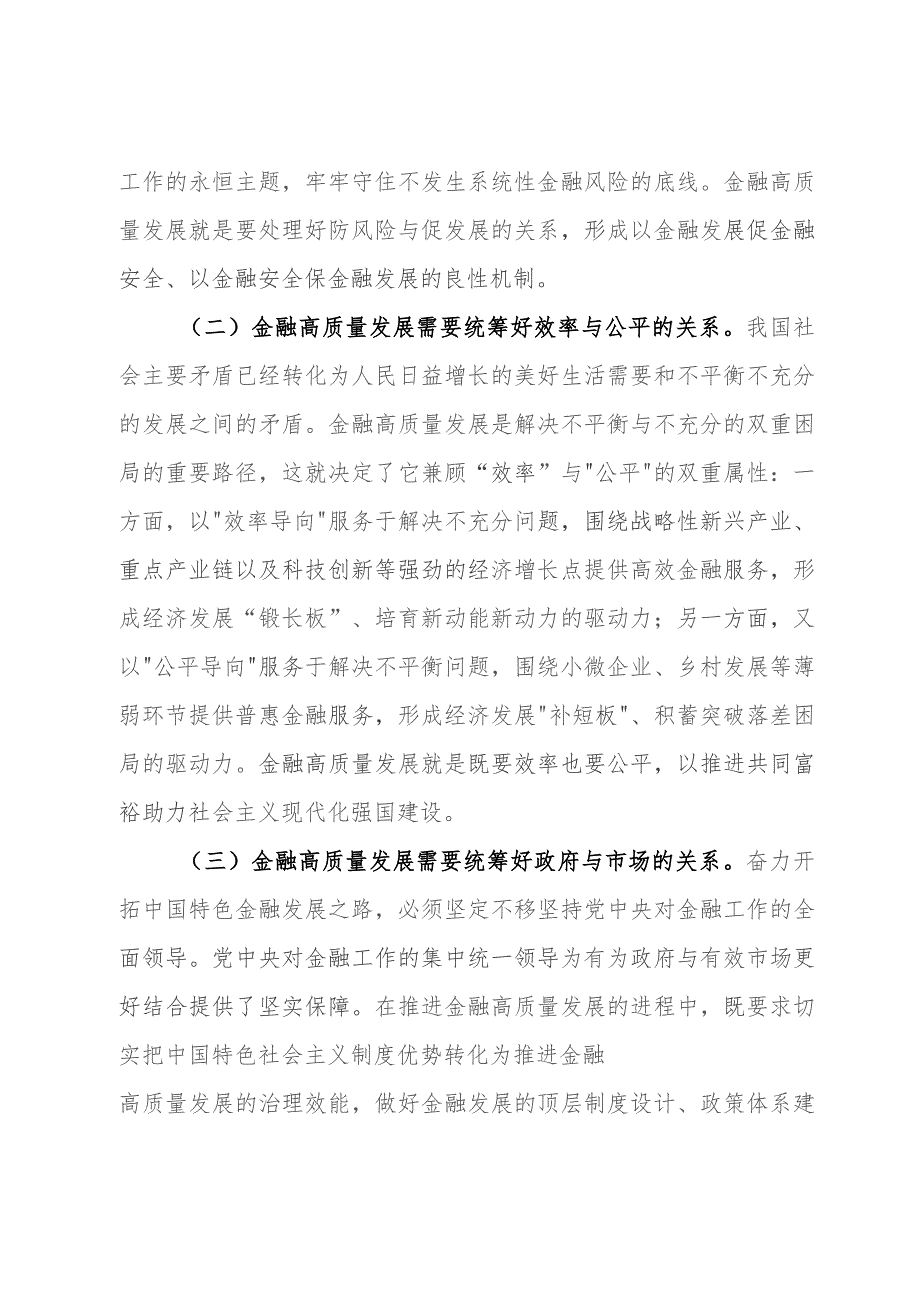 工作的永恒主题，牢牢守住不发生系统性金融风险的底线。金融高质
量发展就是要处理好防风险与促发展的关系，形成以金融发展促金融
安全、以金融安全保金融发展的良性机制。
（二）金融高质量发展需要统筹好效率与公平的关系。我国社
会主要矛盾已经转化为人民日益增长的美好生活需要和不平衡不充分
的发展之间的矛盾。金融高质量发展是解决不平衡与不充分的双重困
局的重要路径，这就决定了它兼顾“效率”与"公平"的双重属性：一
方面，以"效率导向"服务于解决不充分问题，围绕战略性新兴产业、
重点产业链以及科技创新等强劲的经济增长点提供高效金融服务，形
成经济发展“锻长板”、培育新动能新动力的驱动力；另一方面，又
以"公平导向"服务于解决不平衡问题，围绕小微企业、乡村发展等薄
弱环节提供普惠金融服务，形成经济发展"补短板"、积蓄突破落差困
局的驱动力。金融高质量发展就是既要效率也要公平，以推进共同富
裕助力社会主义现代化强国建设。
（三）金融高质量发展需要统筹好政府与市场的关系。奋力开
拓中国特色金融发展之路，必须坚定不移坚持党中央对金融工作的全
面领导。党中央对金融工作的集中统一领导为有为政府与有效市场更
好结合提供了坚实保障。在推进金融高质量发展的进程中，既要求切
实把中国特色社会主义制度优势转化为推进金融
高质量发展的治理效能，做好金融发展的顶层制度设计、政策体系建